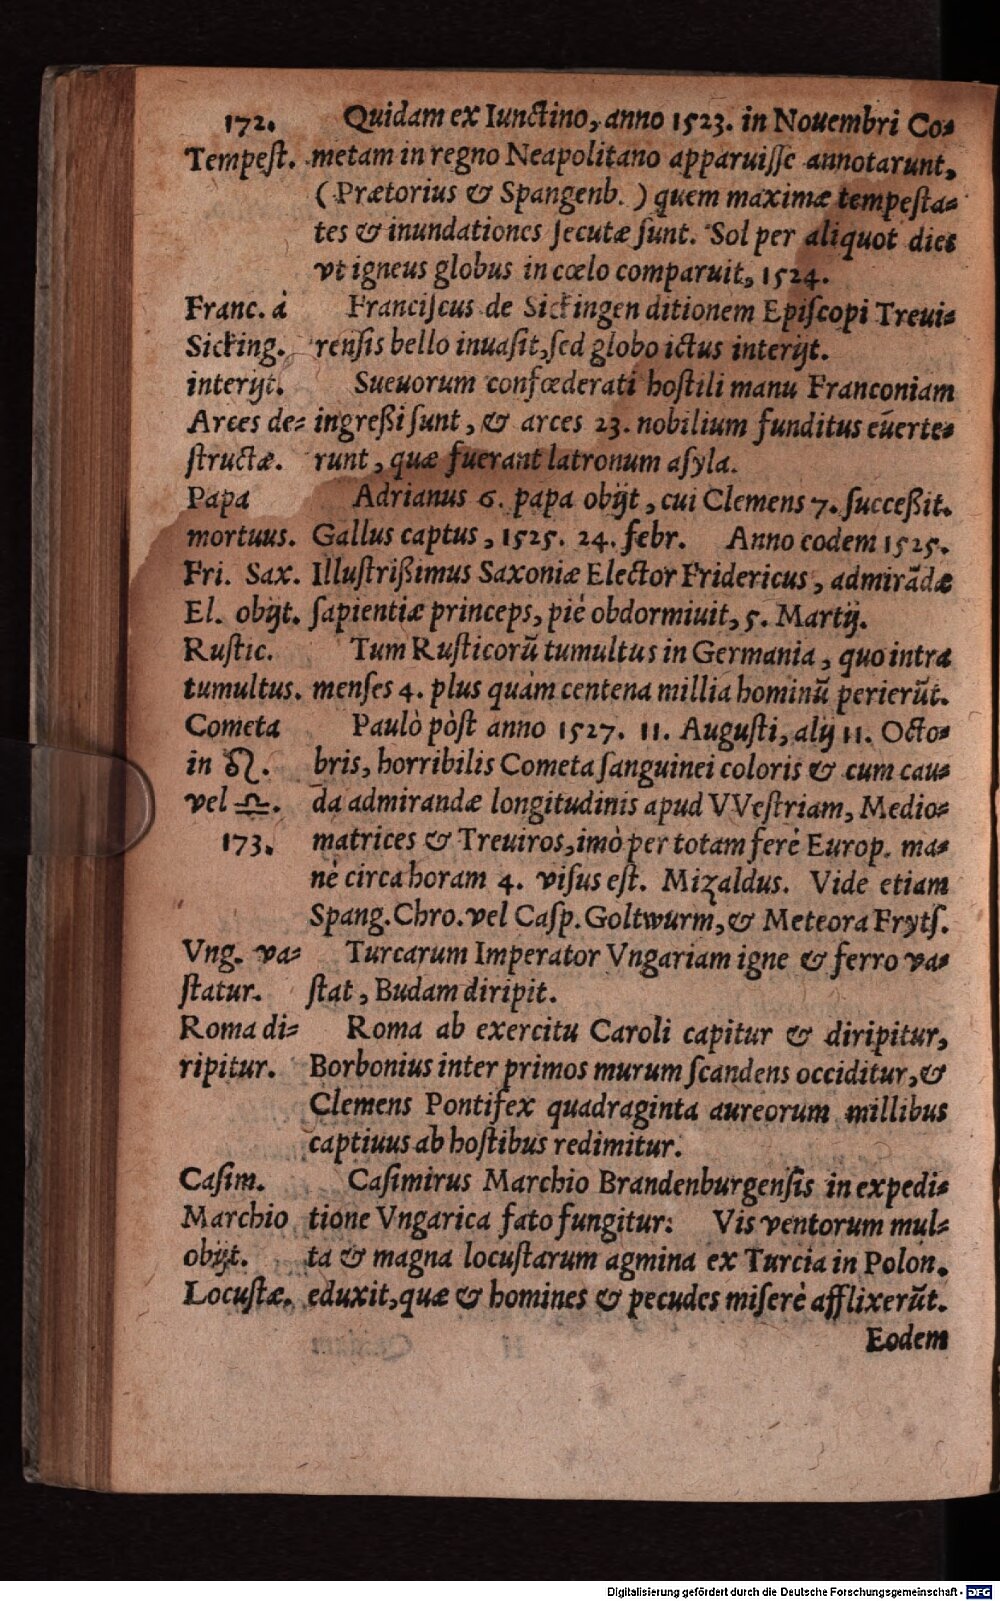 172. Quidam ex Iunctino, anno 1523. in Nouembri Co-
Tempeſt. metam in regno Neapolitano apparuiſſe annotarunt,
(Prætorius & Spangenb.) quem maximæ tempeſta-
tes & inundationes ſecutæ ſunt. Sol per aliquot dies
vt igneus globus in cœlo comparuit, 1524.
Franc. à Franciſcus de Sickingen ditionem Epiſcopi Treui-
Sicking. renſis bello inuaſit, ſed globo ictus interijt.
interijt. Sueuorum confœderati hoſtili manu Franconiam
Arces de- ingreßi ſunt, & arces 23. nobilium funditus euerte-
ſtructæ. runt, quæ fuerant latronum aſyla.
Papa Adrianus 6. papa obijt, cui Clemens 7. ſucceßit.
mortuus. Gallus captus, 1525. 24. febr. Anno eodem 1525.
Fri. Sax. Illuſtrißimus Saxoniæ Elector Fridericus, admirādæ
El. obijt. ſapientiæ princeps, piè obdormiuit, 5. Martij.
Ruſtic. Tum Ruſticorū tumultus in Germania, quo intra
tumultus. menſes 4. plus quàm centena millia hominū perierūt.
Cometa Paulò pòſt anno 1527. 11. Auguſti, alij 11. Octo-
in ♌. bris, horribilis Cometa ſanguinei coloris & cum cau-
vel ♎. da admirandæ longitudinis apud VVeſtriam, Medio-
173. matrices & Treuiros, imò per totam ferè Europ. ma-
nè circa horam 4. viſus eſt. Mizaldus. Vide etiam
Spang. Chro. vel Caſp. Goltwurm, & Meteora Frytſ.
Vng. va- Turcarum Imperator Vngariam igne & ferro va-
ſtatur. ſtat, Budam diripit.
Roma di- Roma ab exercitu Caroli capitur & diripitur,
ripitur. Borbonius inter primos murum ſcandens occiditur, &
Clemens Pontifex quadraginta aureorum millibus
captiuus ab hoſtibus redimitur.
Caſim. Caſimirus Marchio Brandenburgenſis in expedi-
Marchio tione Vngarica fato fungitur: Vis ventorum mul-
obijt. ta & magna locuſtarum agmina ex Turcia in Polon.
Locuſtæ. eduxit, quæ & homines & pecudes miſerè afflixerūt.
Eodem
Digitalisierung gefördert durch die Deutsche Forschungsgemeinschaft - DFG